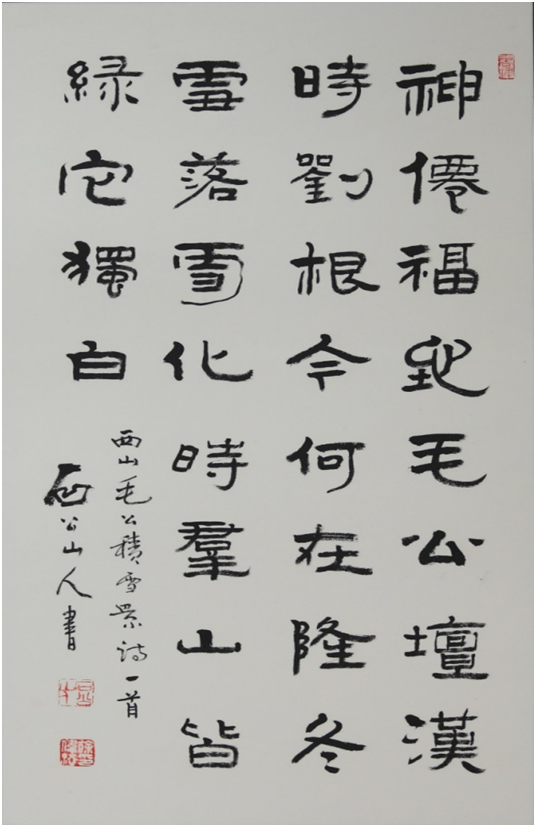 神僊福地毛公壇漢
時劉根今何在隆冬
雪落雪化時羣山皆
緑它獨白
西山毛公積雪景诗一首
石公山人書